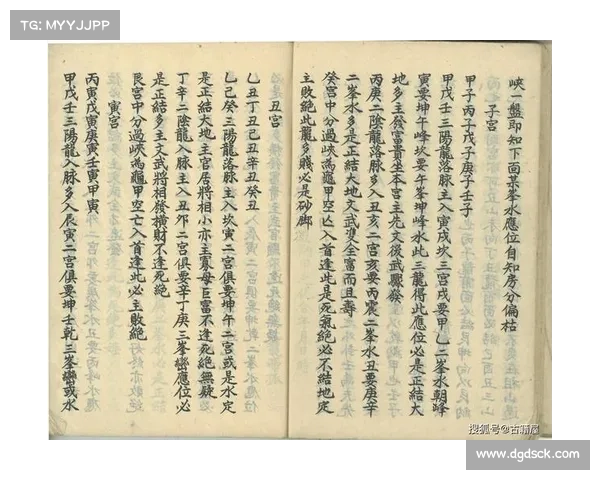 TG: MYYJJPP
峽一盤即知下面某峯水應位自知房分偏枯
子宮
甲子丙子戊子庚子壬子
甲戊壬三陽龍落脉主入寅戌坎三宮戌要甲乙二峯水朝峰
寅要坤午峰坎要午峯坤峰水此三龍得此應位必是正結大
地多主發富貴坐本宮主先文後武驟發
丙庚二陰龍落脉多入丑亥二宮亥要丙震二峯水丑要庚辛
二峯水多是正結大地文武雙全富而且壽
癸宮中分過峽為龜甲空亡入首逢此是死氣絕必不結地定
主敗絕此龍多賤必是砂脚
丑宮
乙丑丁丑己丑辛丑癸丑
乙己癸三陽龍落脉主入坎寅二宮俱要坤午二宮或是水定
是正結大地主宮居將相小亦主寡母巨富不逢死絕無疑
丁辛二陰龍入脉主入丑夘二宮俱要辛丁庚二峯巒應位必
是正結多主文武將相發橫財不逢死絕
艮宮中分過峽為龜甲空亡入首逢此必主敗絕
寅宮
丙寅戊寅庚寅壬寅甲寅
甲戊壬三陽龍入脉多入辰寅二宮俱要坤壬乾三峯巒或水
搜狐号@古籍屋
www.dgdsck.com